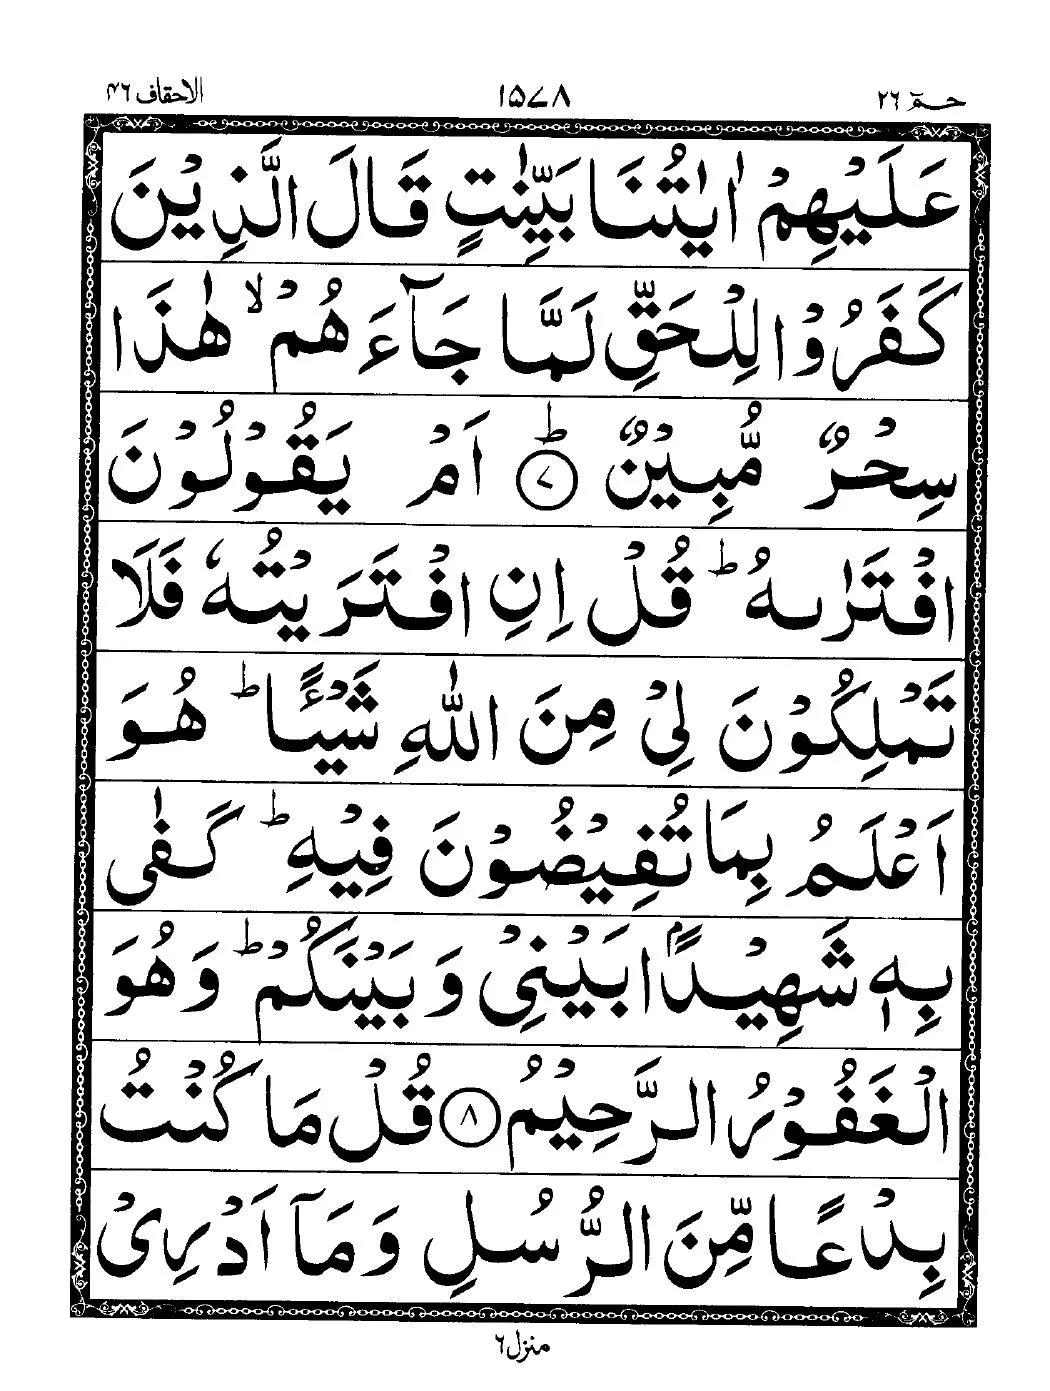 حٰمٓ ٢٦ ١٥٧٨ الاحقاف ٤٦
عَلَيْهِمْ اٰيٰتُنَا بَيِّنٰتٍ قَالَ الَّذِيْنَ
كَفَرُوْا لِلْحَقِّ لَمَّا جَآءَهُمْ ۙ هٰذَا
سِحْرٌ مُّبِيْنٌ ؕ ﴿٧﴾ اَمْ يَقُوْلُوْنَ
افْتَرٰىهُ ؕ قُلْ اِنِ افْتَرَيْتُهٗ فَلَا
تَمْلِكُوْنَ لِيْ مِنَ اللّٰهِ شَيْـًٔا ؕ هُوَ
اَعْلَمُ بِمَا تُفِيْضُوْنَ فِيْهِ ؕ كَفٰى
بِهٖ شَهِيْدًۢا بَيْنِيْ وَبَيْنَكُمْ ؕ وَهُوَ
الْغَفُوْرُ الرَّحِيْمُ ﴿٨﴾ قُلْ مَا كُنْتُ
بِدْعًا مِّنَ الرُّسُلِ وَمَآ اَدْرِيْ
منزل ٦